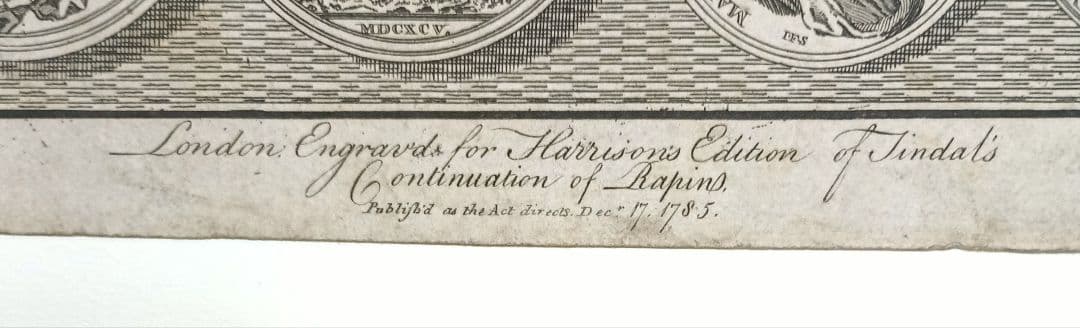 MDCXCV.
MA
London: Engrav'd for Harrison's Edition of Tindal's
Continuation of Rapin.
Publish'd as the Act directs. Decr. 17. 1785.